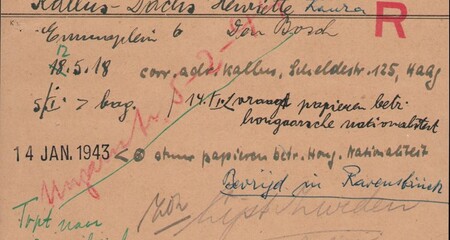 Kallus-Dachs Henriette Laura
R
Emmaplein 6 Den Bosch
12
18.5.18 corr. adr. Kallus, Scheldestr. 125, Haag
5/I > bag. / 14/I vraagt papieren betr.
hongaarsche nationaliteit
14 JAN. 1943 < stuur papieren betr. Hong. Nationaliteit
Bevrijd in Ravensbrück
Lijst Zweden
Topt van